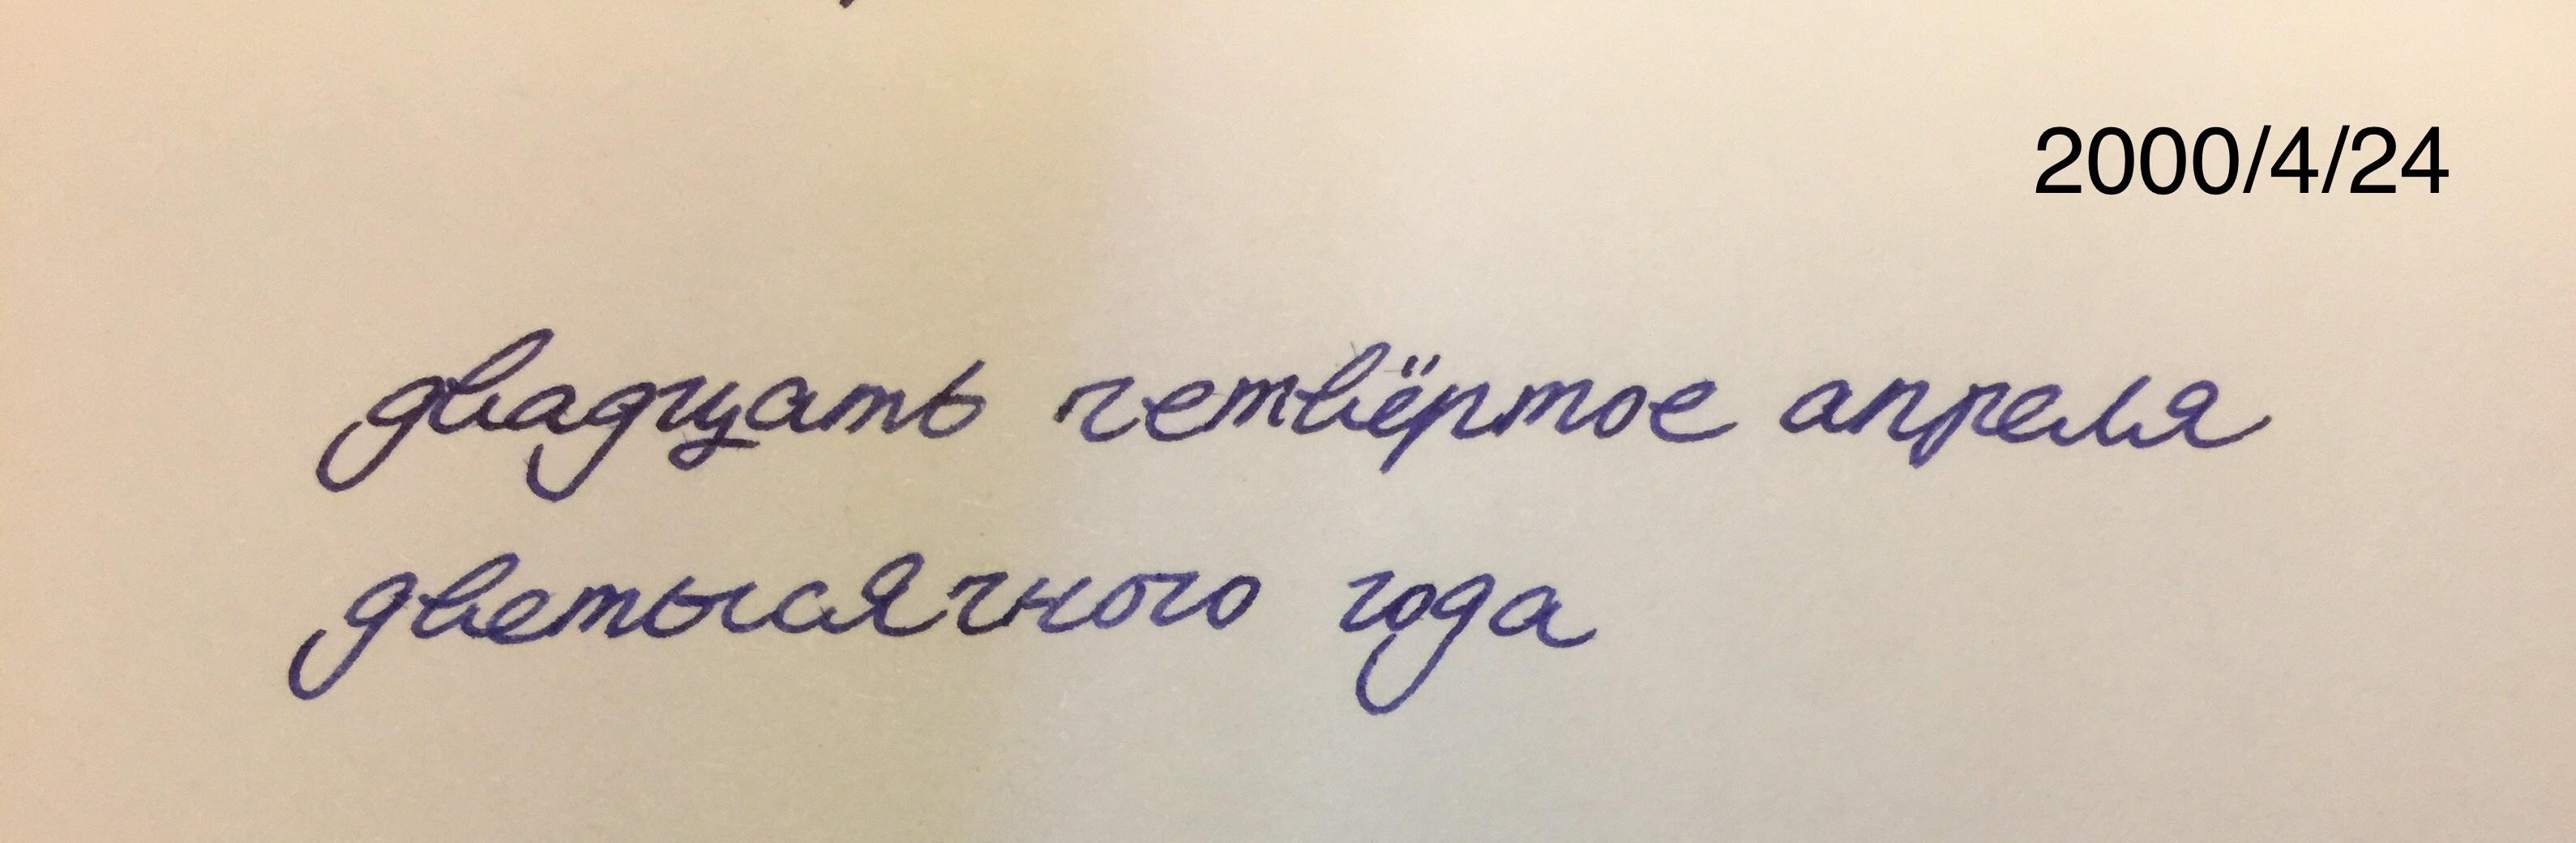 2000/4/24
двадцать четвёртое апреля
дветысячного года